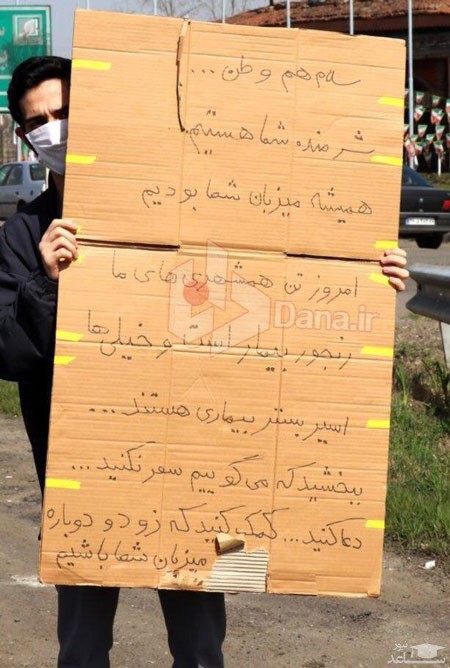 سلام هم وطن ...
شرمنده شما هستیم
همیشه میزبان شما بودیم
امروز تن همشهری های ما
رنجور بیمار است و خیلی ها
اسیر بستر بیماری هستند ...
ببخشید که می گوییم سفر نکنید ...
دعا کنید ... کمک کنید که زود دوباره
میزبان شما باشیم
Dana.ir
نیوز
ســاعد